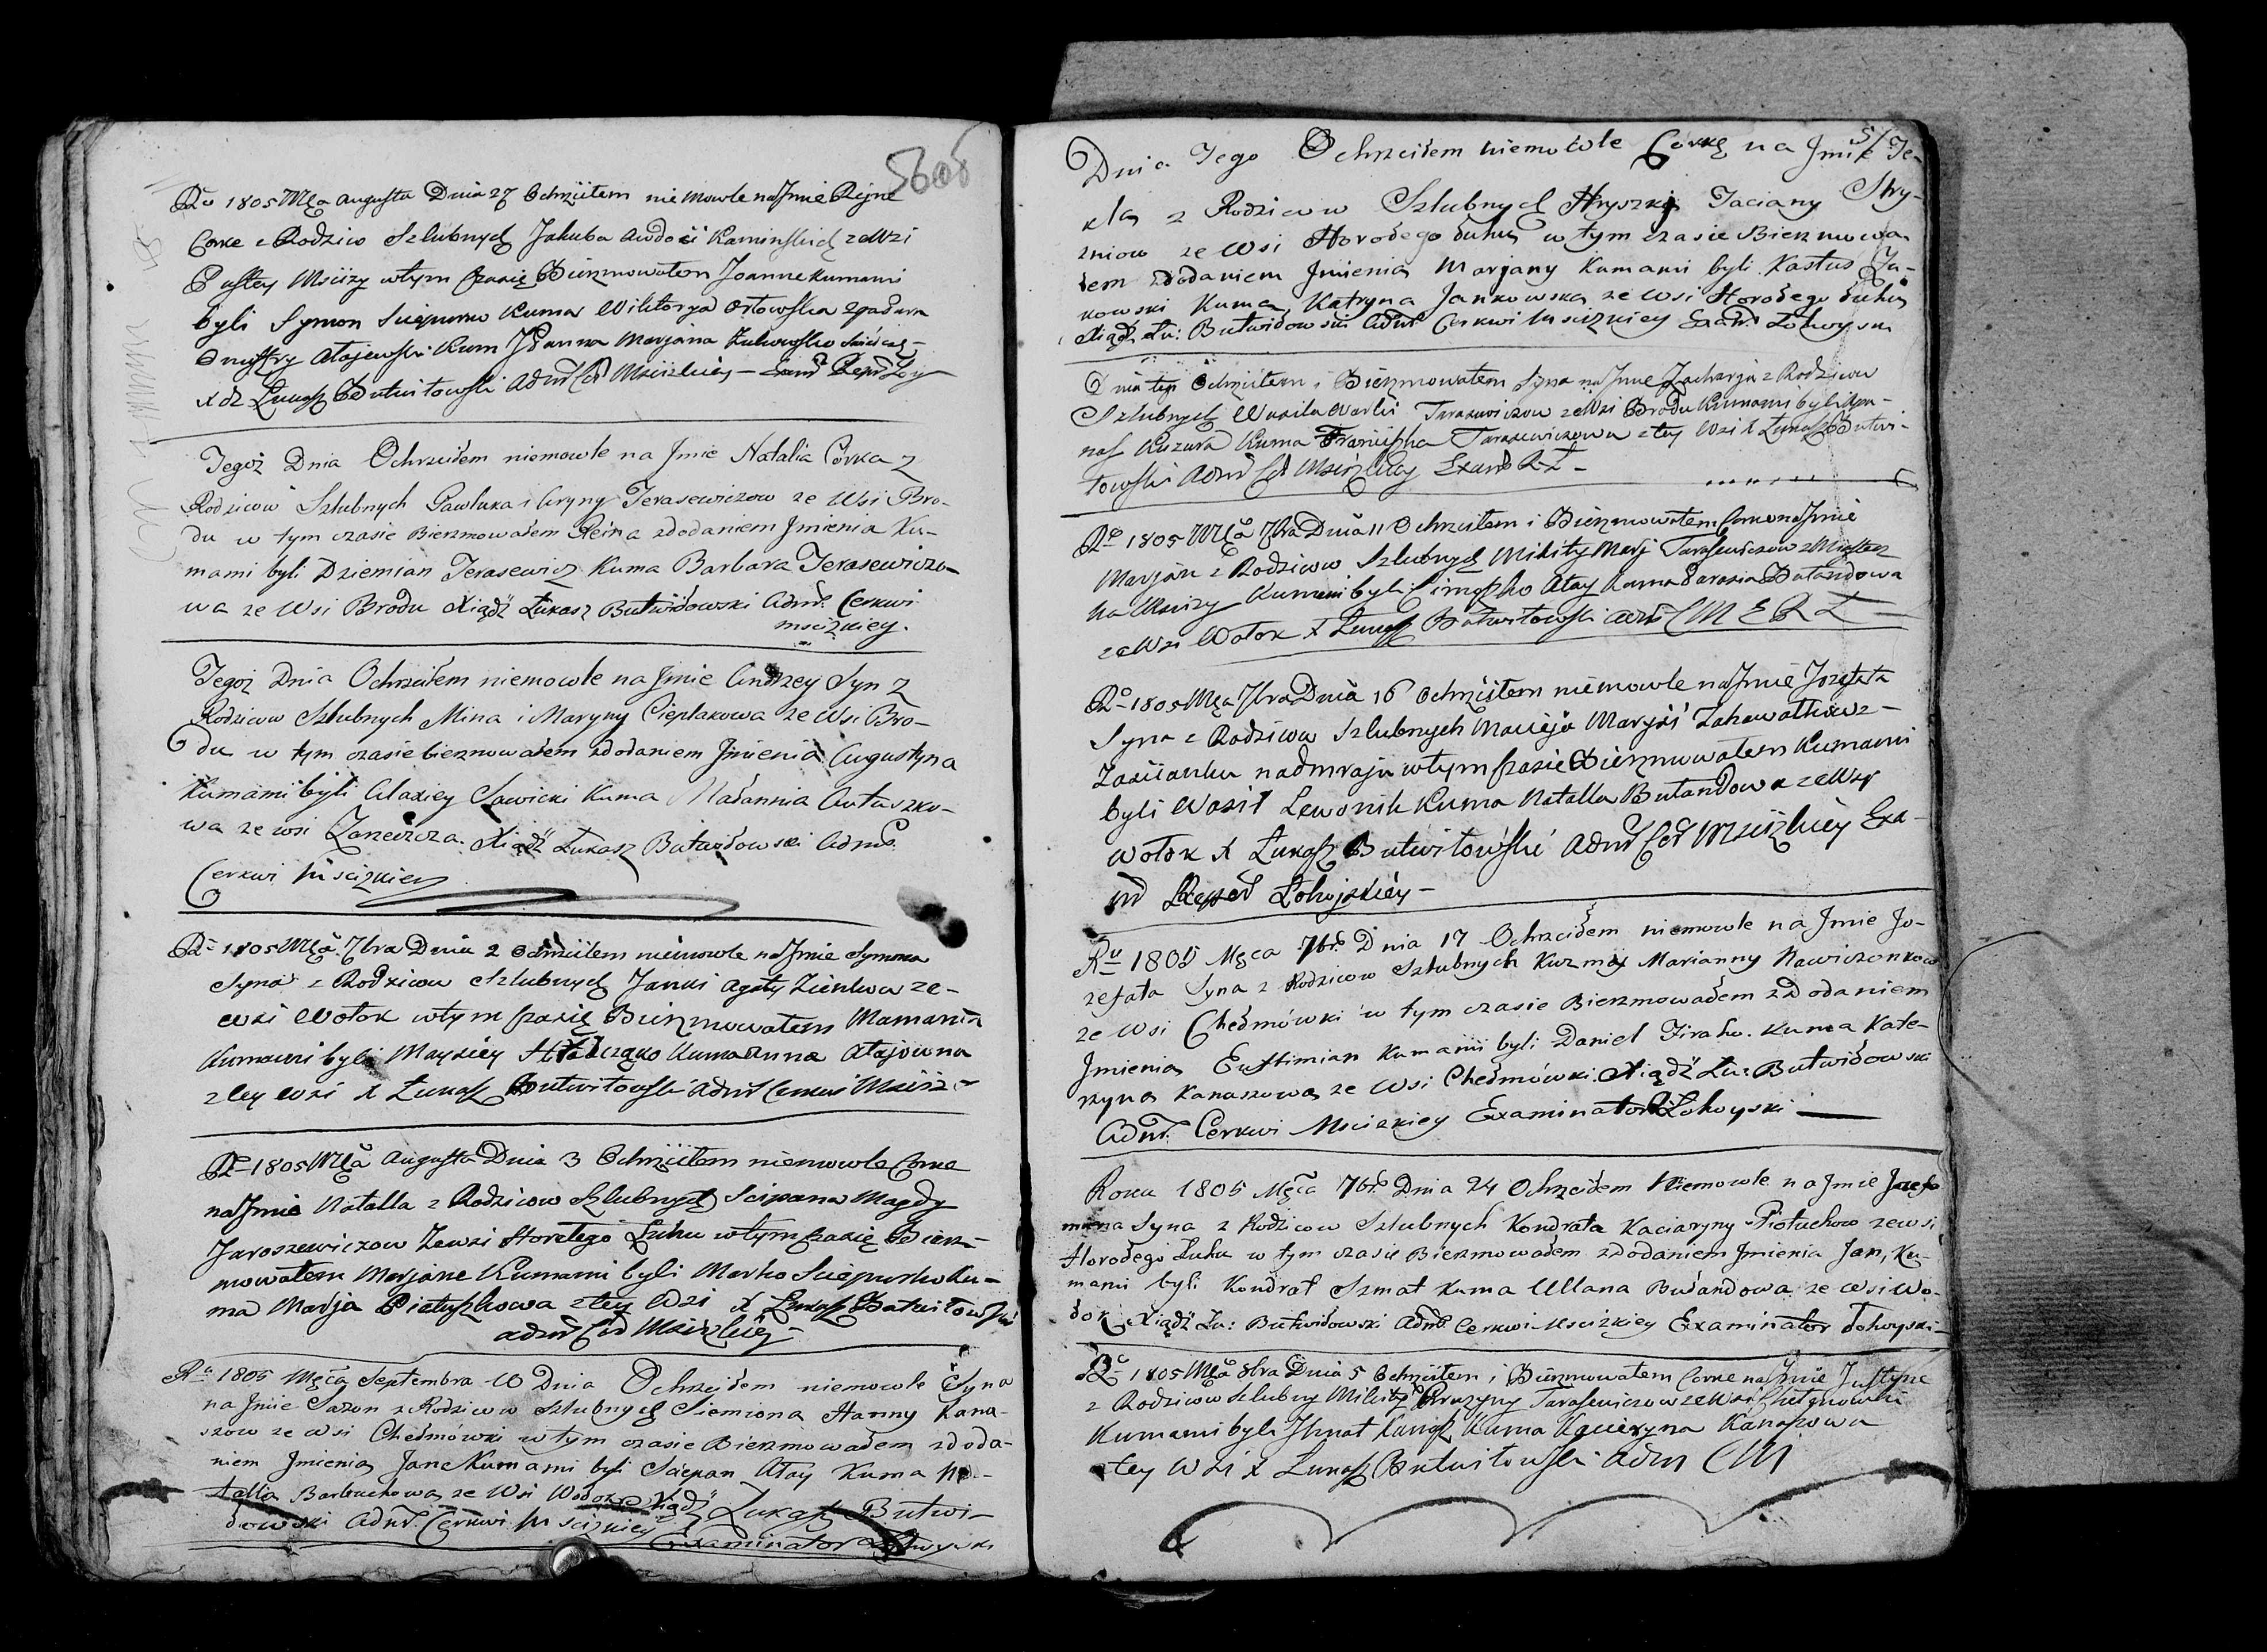 5606
Ru 1805 Mca Augusta Dnia 27 Ochrziłem niemowle na Jmie Rejne
Corke z Rodziców Szlubnych Jakuba Awdoci Kaminskich ze Wsi
Pustey Msciży w tym Czasie Bierzmowałem Joanne Kumami
byli Symon Sciepurko Kuma Wiktorya Orłowska
Kum Joanna Marjana
X dz Łukasz Butwiłowski Admr Cer Msciżkiey
Tegoż Dnia Ochrzciłem niemowle na Jmie Natalia Corka z
Rodzicow Szlubnych Pawluka i Aryny Terasewiczow ze Wsi Bro-
du w tym czasie Bierzmowałem Reina z dodaniem Jmienia Ku-
mami byli Dziemian Terasewicz Kuma Barbara Terasewiczo-
wa ze Wsi Brodu Xiądź Łukasz Butwiłowski Admr. Cerkwi
msciżkiey.
Tegoż Dnia Ochrzciłem niemowle na Jmie Andrzey Syn z
Rodzicow Szlubnych Mina i Maryny Cieplakowa ze Wsi Bro-
du w tym czasie bierzmowałem z dodaniem Jmienia Augustyna
Kumami byli Alaxiey Sawicki Kuma Madannia Antuszko-
wa ze wsi Zarzecza. Xiądź Łukasz Butwiłowski Admr.
Cerkwi Msciżkiey
Ru 1805 Mca 7bra Dnia 2 Ochrziłem niemowle na Jmie Symona
Syna z Rodzicow Szlubnych Janki Agaty Zienkow ze-
Wsi Wołok w tym Czasie Bierzmowałem Mamanta
Kumami byli Maxsiey Kuma Anna Atajowna
z tey Wsi X Łukasz Butwiłowski Admr Cerkwi Msciż
Ru 1805 Mca Augusta Dnia 3 Ochrziłem niemowle Corke
na Jmie Natalla z Rodzicow Szlubnych Sciepana Magdy
Jaroszewiczow Ze wsi Horełego Łuhu w tym Czasie Bierz-
mowałem Marjane Kumami byli Marko Sciepurko Ku-
ma Marja Pietuszkowa z tey Wsi X Łukasz Butwiłowski
Admr Cer Msciżkiey
Ru 1805 Męca Septembra 10 Dnia Ochrzciłem niemowle Syna
na Jmie Sazon z Rodzicow Szlubnych Siemiona Hanny Kana-
szow ze Wsi Chełmówki w tym czasie Bierzmowałem z doda-
niem Jmienia Jane Kumami byli Sciepan Atay Kuma Na-
talla Barbuchowa ze Wsi Wołok Xiądź Łukasz Butwi-
łowski Admr. Cerkwi Msciżkiey
Examinator Łohoyski
57
Dnia Tego Ochrzciłem niemowle Corkę na Jmie Te-
kla z Rodzicow Szlubnych Hryszki Taciany Stry-
zniow ze Wsi Horołego Łuhu w tym czasie Bierzmowa-
łem z dodaniem Jmienia Marjany Kumami byli Kastus Ja-
kowski Kuma Katryna Jankowska ze Wsi Horołego Łuhu
Xiądź Łu: Butwiłowski Admr Cerkwi Msciżkiey Łohoyski
Dnia tego Ochrziłem i Bierzmowałem Syna na Jmie Zacharja z Rodzicow
Szlubnych Wasila Warki Tarasewiczow z Wsi Brodu Kumami byli Apa-
nas Kuzura Kuma Franciszka Tarasewiczowa z tey Wsi X Łukasz Butwi-
łowski Admr Cer Msciżkiey
Ru 1805 Mca 7bra Dnia 11 Ochrziłem i Bierzmowałem Corke na Jmie
Marjan z Rodzicow Szlubnych Mikity Marji Tarasewiczow z Miastecz
ka Msciży Kumami byli Cimoszko Atay Kuma Parasia Bułandowa
ze Wsi Wołok X Łukasz Butwiłowski Admr C M E R Ł
Ru 1805 Mca 7bra Dnia 16 Ochrziłem niemowle na Jmie Jozefata
Syna z Rodzicow Szlubnych Macieja Maryśi Zahawalkow z
Zascianku nadmraju w tym Czasie Bierzmowałem Kumami
byli Wasil Lewonik Kuma Natalla Bułandowa ze Wsi
Wołok X Łukasz Butwiłowski Admr Cer Msciżkiey Exa-
mr Łohojskiey
Ru 1805 Męca 7br. Dnia 17 Ochrzciłem niemowle na Jmie Jo-
zefata Syna z Rodzicow Szlubnych Kuzmy Marianny Nawiczonkow
ze Wsi Chełmówki w tym czasie Bierzmowałem z Dodaniem
Jmienia Eustimian Kumami byli Daniel Ziraho. Kuma Kate-
rzyna Kanaszowa ze Wsi Chełmówki. Xiądź Łu: Butwiłowski
Admr. Cerkwi Msciżkiey Examinator Łohoyski
Roku 1805 Męca 7br. Dnia 24 Ochrzciłem Niemowle na Jmie
Syna z Rodzicow Szlubnych Kondrata Kaciaryny Piotuchow ze wsi
Horołego Łuhu w tym czasie Bierzmowałem z dodaniem Jmienia Jan, Ku-
mami byli Kondrat Szmat Kuma Ullana Bułandowa ze Wsi Wo-
łok Xiądź Łu: Butwiłowski Admr Cerkwi Msciżkiey Examinator Łohoyski
Ru 1805 Mca 8bra Dnia 5 Ochrziłem i Bierzmowałem Corke na Jmie Justyne
z Rodzicow Szlubny Mikity Kruzyny Tarasewiczow ze Wsi Chełmowki
Kumami byli Jhnat Kanasz Kuma Kacieryna Kanaszowa
z tey Wsi X Łukasz Butwiłowski Admr C M